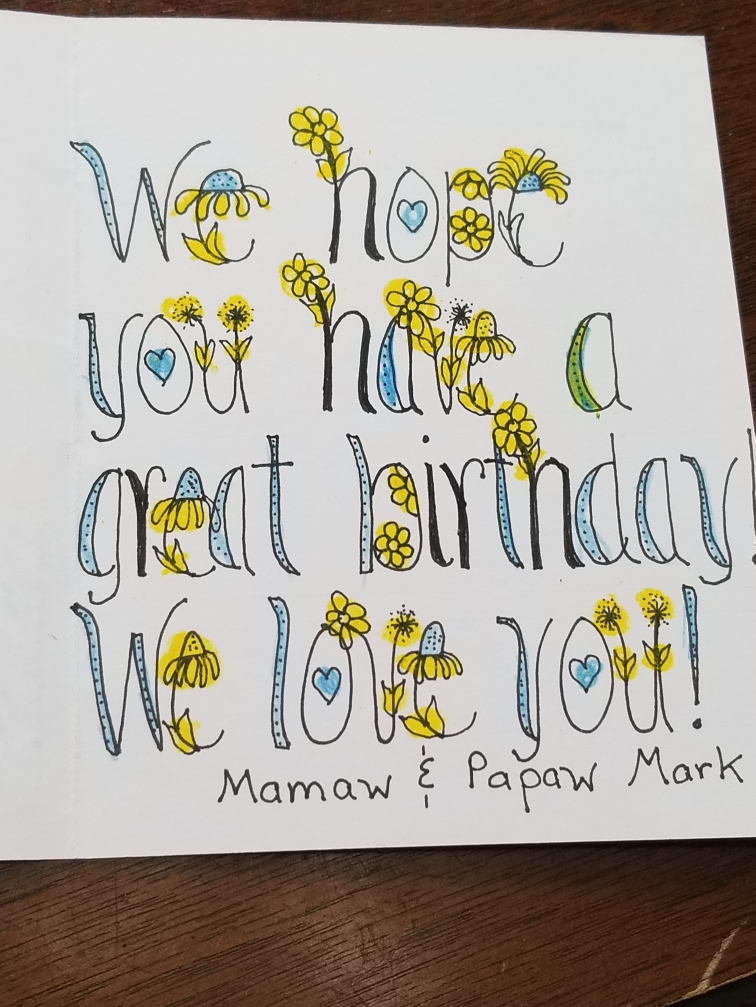 We hope
you have a
great birthday!
We love you!
Mamaw & Papaw Mark